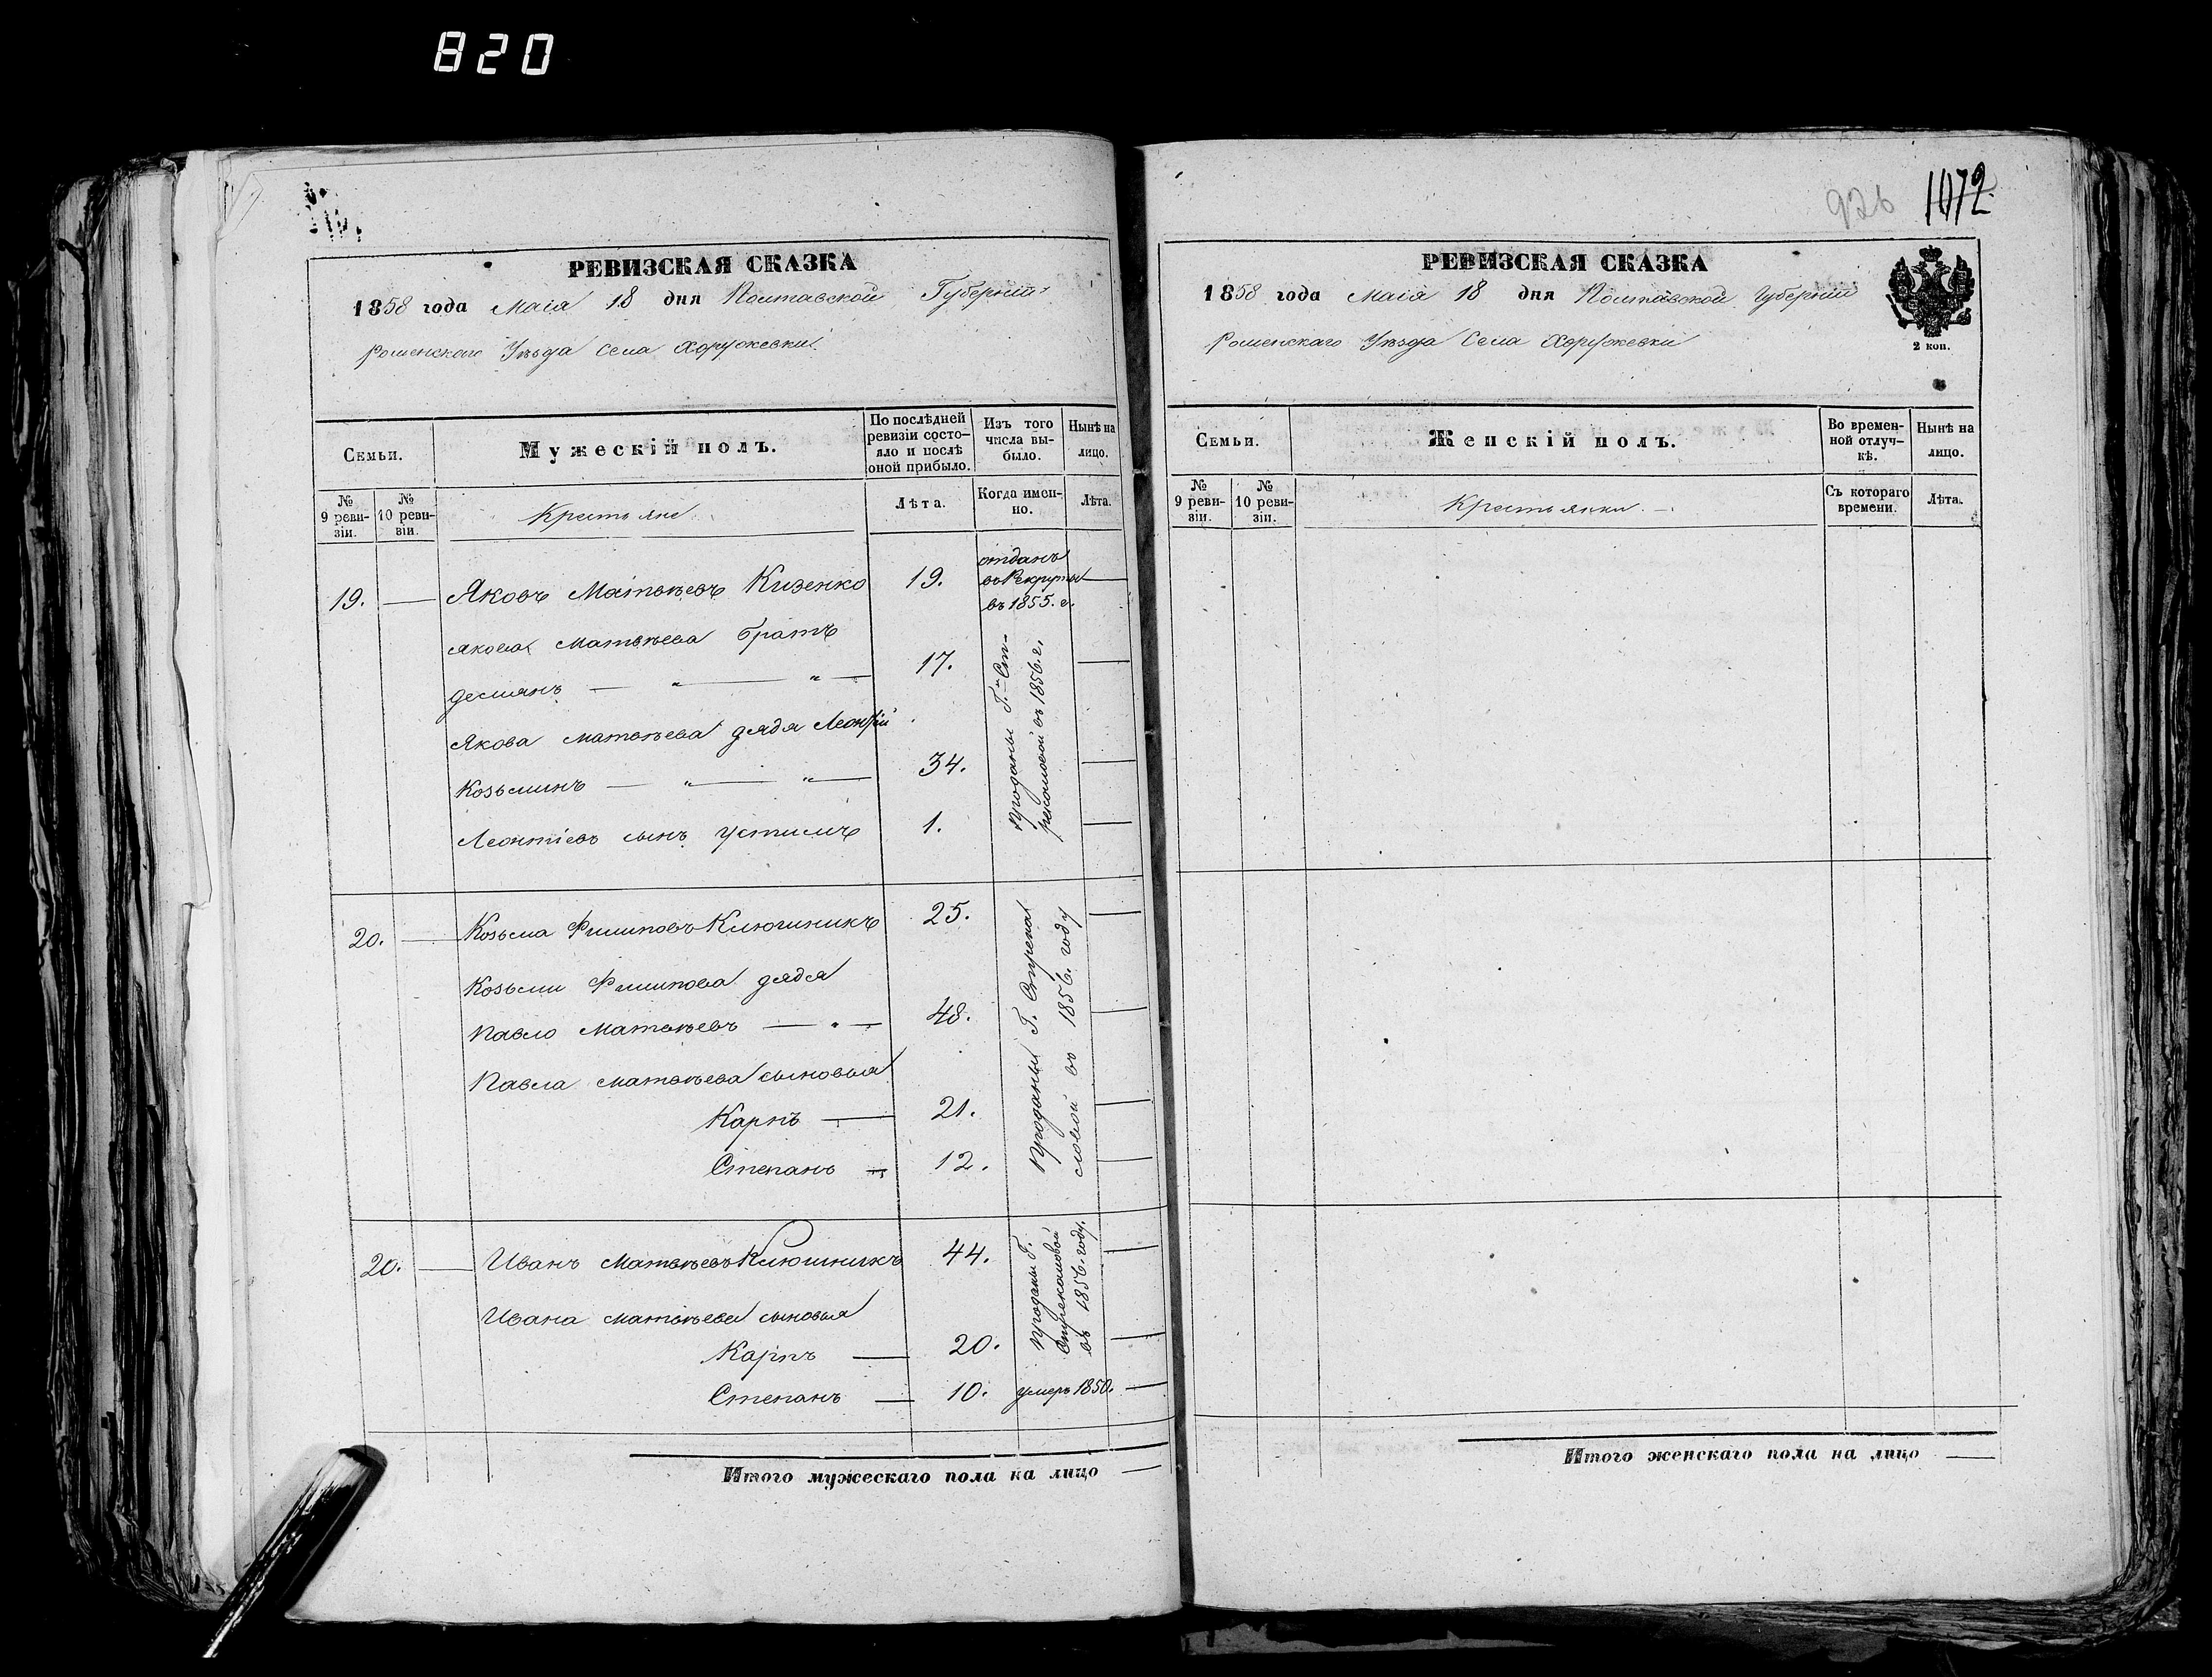 820
РЕВИЗСКАЯ СКАЗКА
1858 года Маія 18 дня Полтавской Губерніи
Роменскаго Уѣзда Села Хоружевки
Семьи.
Мужескій полъ.
По послѣдней ревизіи состояло и послѣ оной прибыло.
Изъ того числа выбыло.
Нынѣ на лицо.
№ 9 ревизіи.
№ 10 ревизіи.
Крестьяне
Лѣта.
Когда именно.
Лѣта.
19. — Яковъ Матвѣевъ Кизенко 19. отданъ въ Рекруты въ 1855. г. —
Якова Матвѣева братъ
Демянъ — " — " — 17. —
Якова Матвѣева дядя Леонтій
Козьминъ — " — " — 34. —
Леонтіевъ сынъ Устимъ 1. —
проданы Г. Стрекаловой въ 1856. г.
20. — Козьма Филиповъ Ключникъ 25. —
Козьми Филипова дядя
Павло Матвѣевъ — " — 48. —
Павла Матвѣева сыновья
Карпъ — 21. —
Степанъ — 12. —
Проданы Г. Стрекаловой въ 1856. году
20. — Иванъ Матвѣевъ Ключникъ 44. —
Ивана Матвѣева сыновья
Карпъ — 20. —
проданы Г. Стрекаловой въ 1856. году.
Степанъ — 10. умеръ 1850. —
Итого мужескаго пола на лицо —
926 1072
РЕВИЗСКАЯ СКАЗКА
1858 года Маія 18 дня Полтавской Губерніи
Роменскаго Уѣзда Села Хоружевки
2 коп.
Семьи.
Женскій полъ.
Во временной отлучкѣ.
Нынѣ на лицо.
№ 9 ревизіи.
№ 10 ревизіи.
Крестьянки. —
Съ котораго времени.
Лѣта.
Итого женскаго пола на лицо —